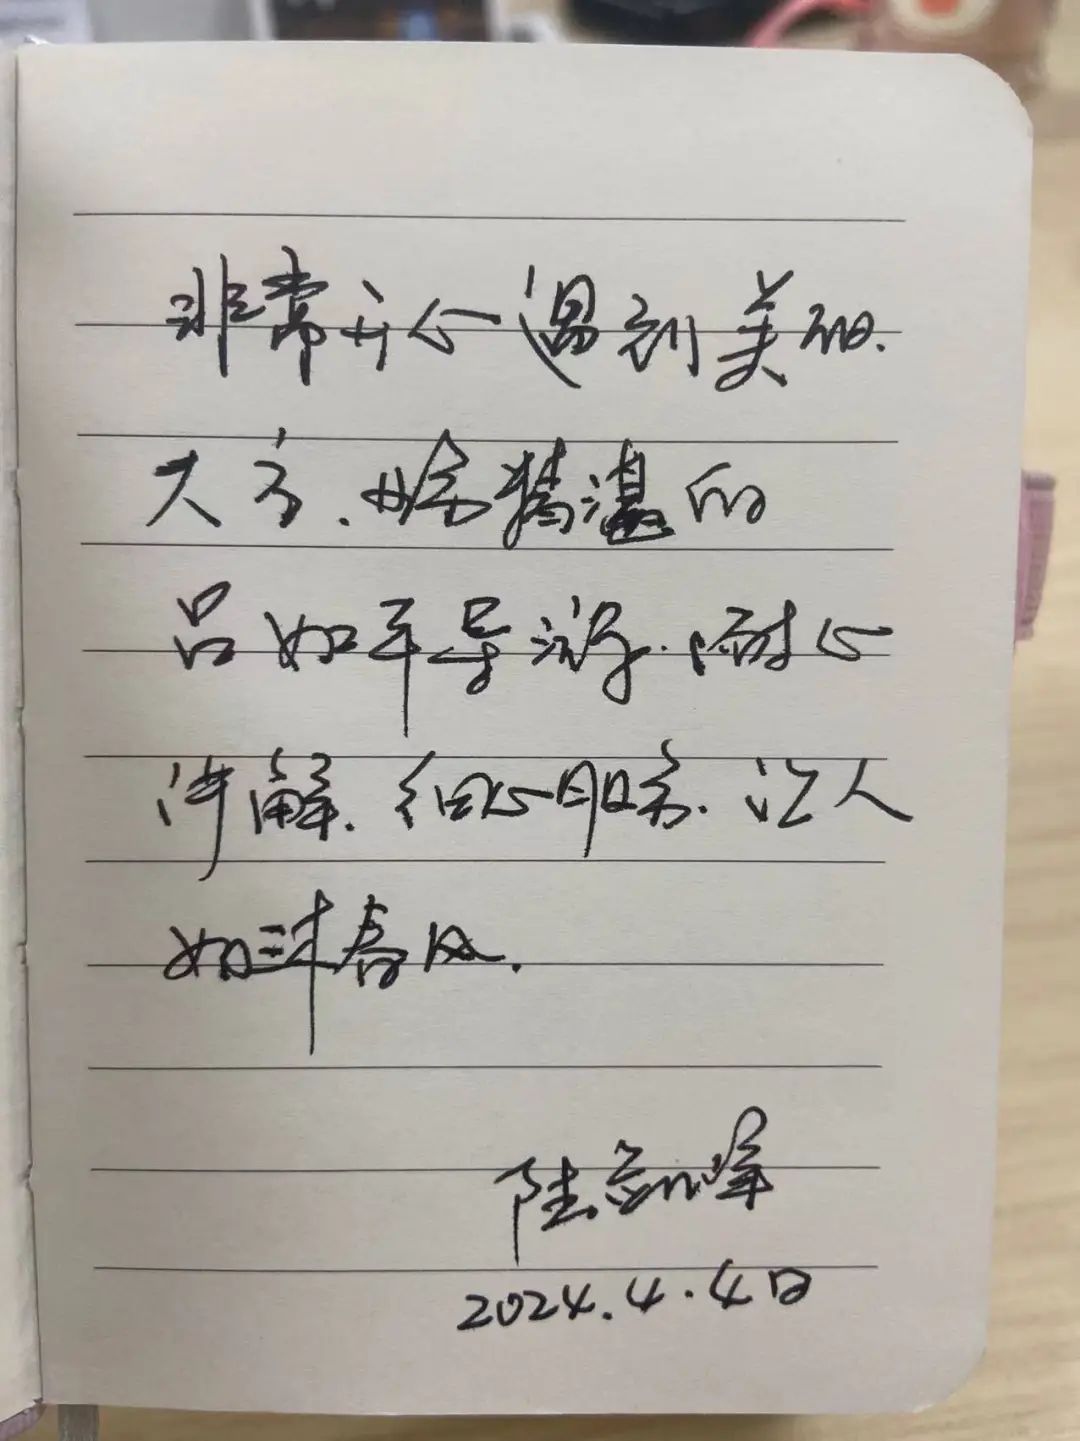 非常开心遇到美丽.
大方.业务精湛的
吕如平导游.耐心
讲解.细心服务.让人
如沐春风.
陆
2024.4.4日